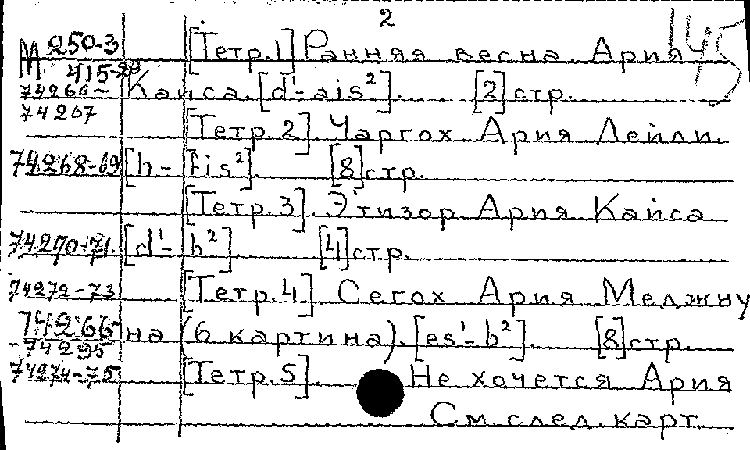 2
145
М 250-3 [Тетр.1] Ранняя весна. Ария
415-29
74266- Каиса. [d'-ais²]. [2] стр.
74267
[Тетр.2]. Чаргох. Ария Лейли.
74268-69 [h-fis²]. [8] стр.
[Тетр.3]. Этизор. Ария Кайса
74270-71. [d'-h²] [4] стр.
74272-73 [Тетр.4] Сегох Ария Меджну
74266 на (6 картина). [es'-b²]. [8] стр.
-74295
74274-75 [Тетр.5]. Не хочется Ария
См. след. карт.